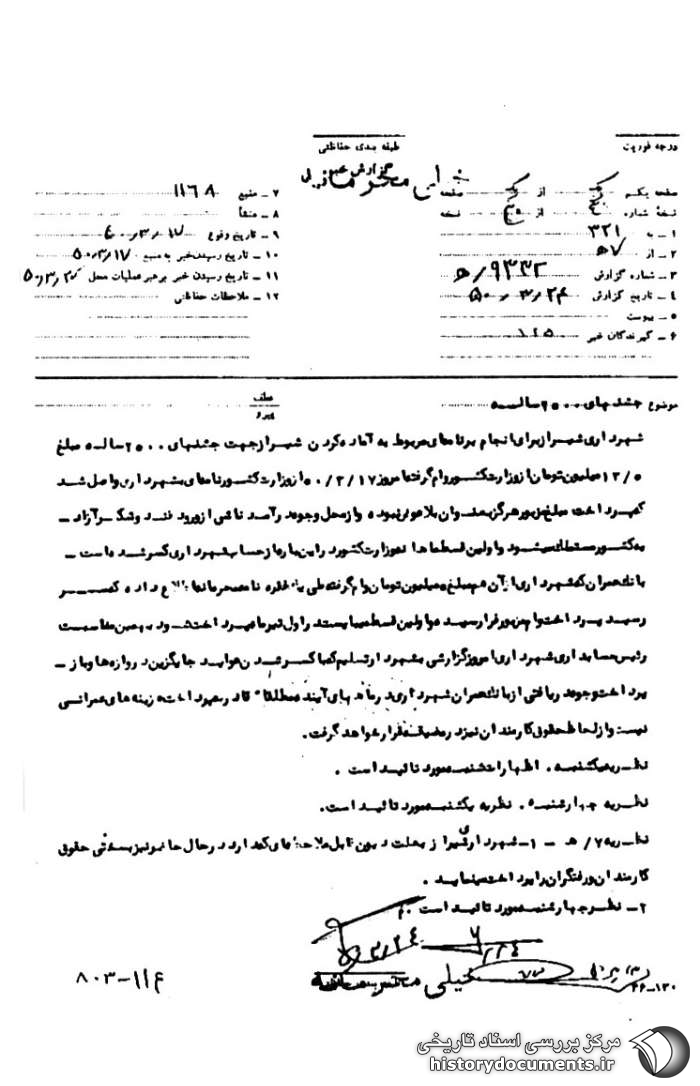 درجه فوریت
طبقه بندی حفاظتی
گزارش خبر
خیلی محرمانه
صفحه یکم از صفحه
نسخهٔ شماره از نسخه
۱ – به ۳۲۱
۲ – از ۷ه
۳ – شماره گزارش ۹۳۳۲/ه
۴ – تاریخ گزارش ۵۰٫۳٫۲۴
۵ – پیوست
۶ – گیرندگان خبر
۷ – منبع ۱۱۶۸
۸ – منشأ
۹ – تاریخ وقوع ۵۰٫۳٫۱۷
۱۰ – تاریخ رسیدن خبر به منبع ۵۰٫۳٫۱۷
۱۱ – تاریخ رسیدن خبر برهبر عملیات محل ۵۰٫۳٫۲۰
۱۲ – ملاحظات حفاظتی
موضوع جشنهای ۲۵۰۰ ساله
عطف
پیرو
شهرداری شیراز برای انجام برنامه‌های مربوط به آماده کردن شیراز جهت جشنهای ۲۵۰۰ ساله مبلغ
۱۲/۵ میلیون تومان از وزارت کشور وام گرفته امروز ۵۰/۳/۱۷ از وزارت کشور نامه‌ای بشهرداری واصل شد
که پرداخت مبلغ مزبور هرگز بعنوان بلاعوض نبوده و از محل وجوه درآمد ناشی از ورود قند و شکر آزاد –
به کشور مستهلک میشود و اولین قسط ماهانه وزارت کشور را بن بار از حساب شهرداری کسر شده است –
بانک عمران که شهرداری از آن هم مبلغ میلیون تومان وام گرفته طی نامه محرمانه اطلاع داده که سر
رسید پرداخت وام مزبور فرا رسیده و اولین قسط میبایستی در اول تیرماه پرداخت شود بهمین مناسبت
رئیس حسابداری شهرداری امروز گزارشی بشهردار تسلیم که با کسر شدن عواید جایگزین دروازه‌ها و باز –
پرداخت وجوه دریافتی از بانک عمران شهرداری در ماههای آینده مطلقا قادر به پرداخت هزینه های عمرانی
نیست و از لحاظ حقوق کارمندان نیز در مضیقه قرار خواهد گرفت.
نظریه یکشنبه . اظهارات شنبه مورد تائید است .
نظریه چهارشنبه . نظریه یکشنبه مورد تائید است.
نظریه ۷/ه – ۱– شهرداری شیراز بعلت دیون قابل ملاحظه‌ای که دارد در حال حاضر نیز بسختی حقوق
کارمندان و رفتگران را پرداخت مینماید .
۲– نظر چهارشنبه مورد تائید است .
۳/۲۴
خیلی محرمانه
۴۶–۱۳۰
۸۰۳–۱۱۴
مرکز بررسی اسناد تاریخی
historydocuments.ir